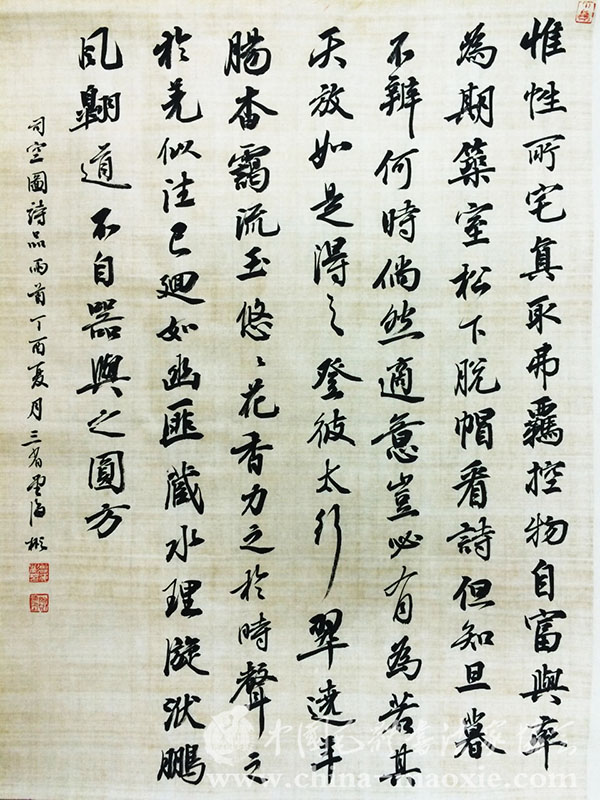 惟性所宅真取弗羈控物自富與率
為期築室松下脫帽看詩但知旦暮
不辨何時倘然適意豈必有為若其
天放如是得之登彼太行翠遶羊
腸杳靄流玉悠〻花香力之於時聲之
於羌似往已迴如幽匪藏水理漩洑鵬
風翱道不自器與之圓方
司空圖詩品兩首丁酉夏月三省 彬
www.china-maoxie.com